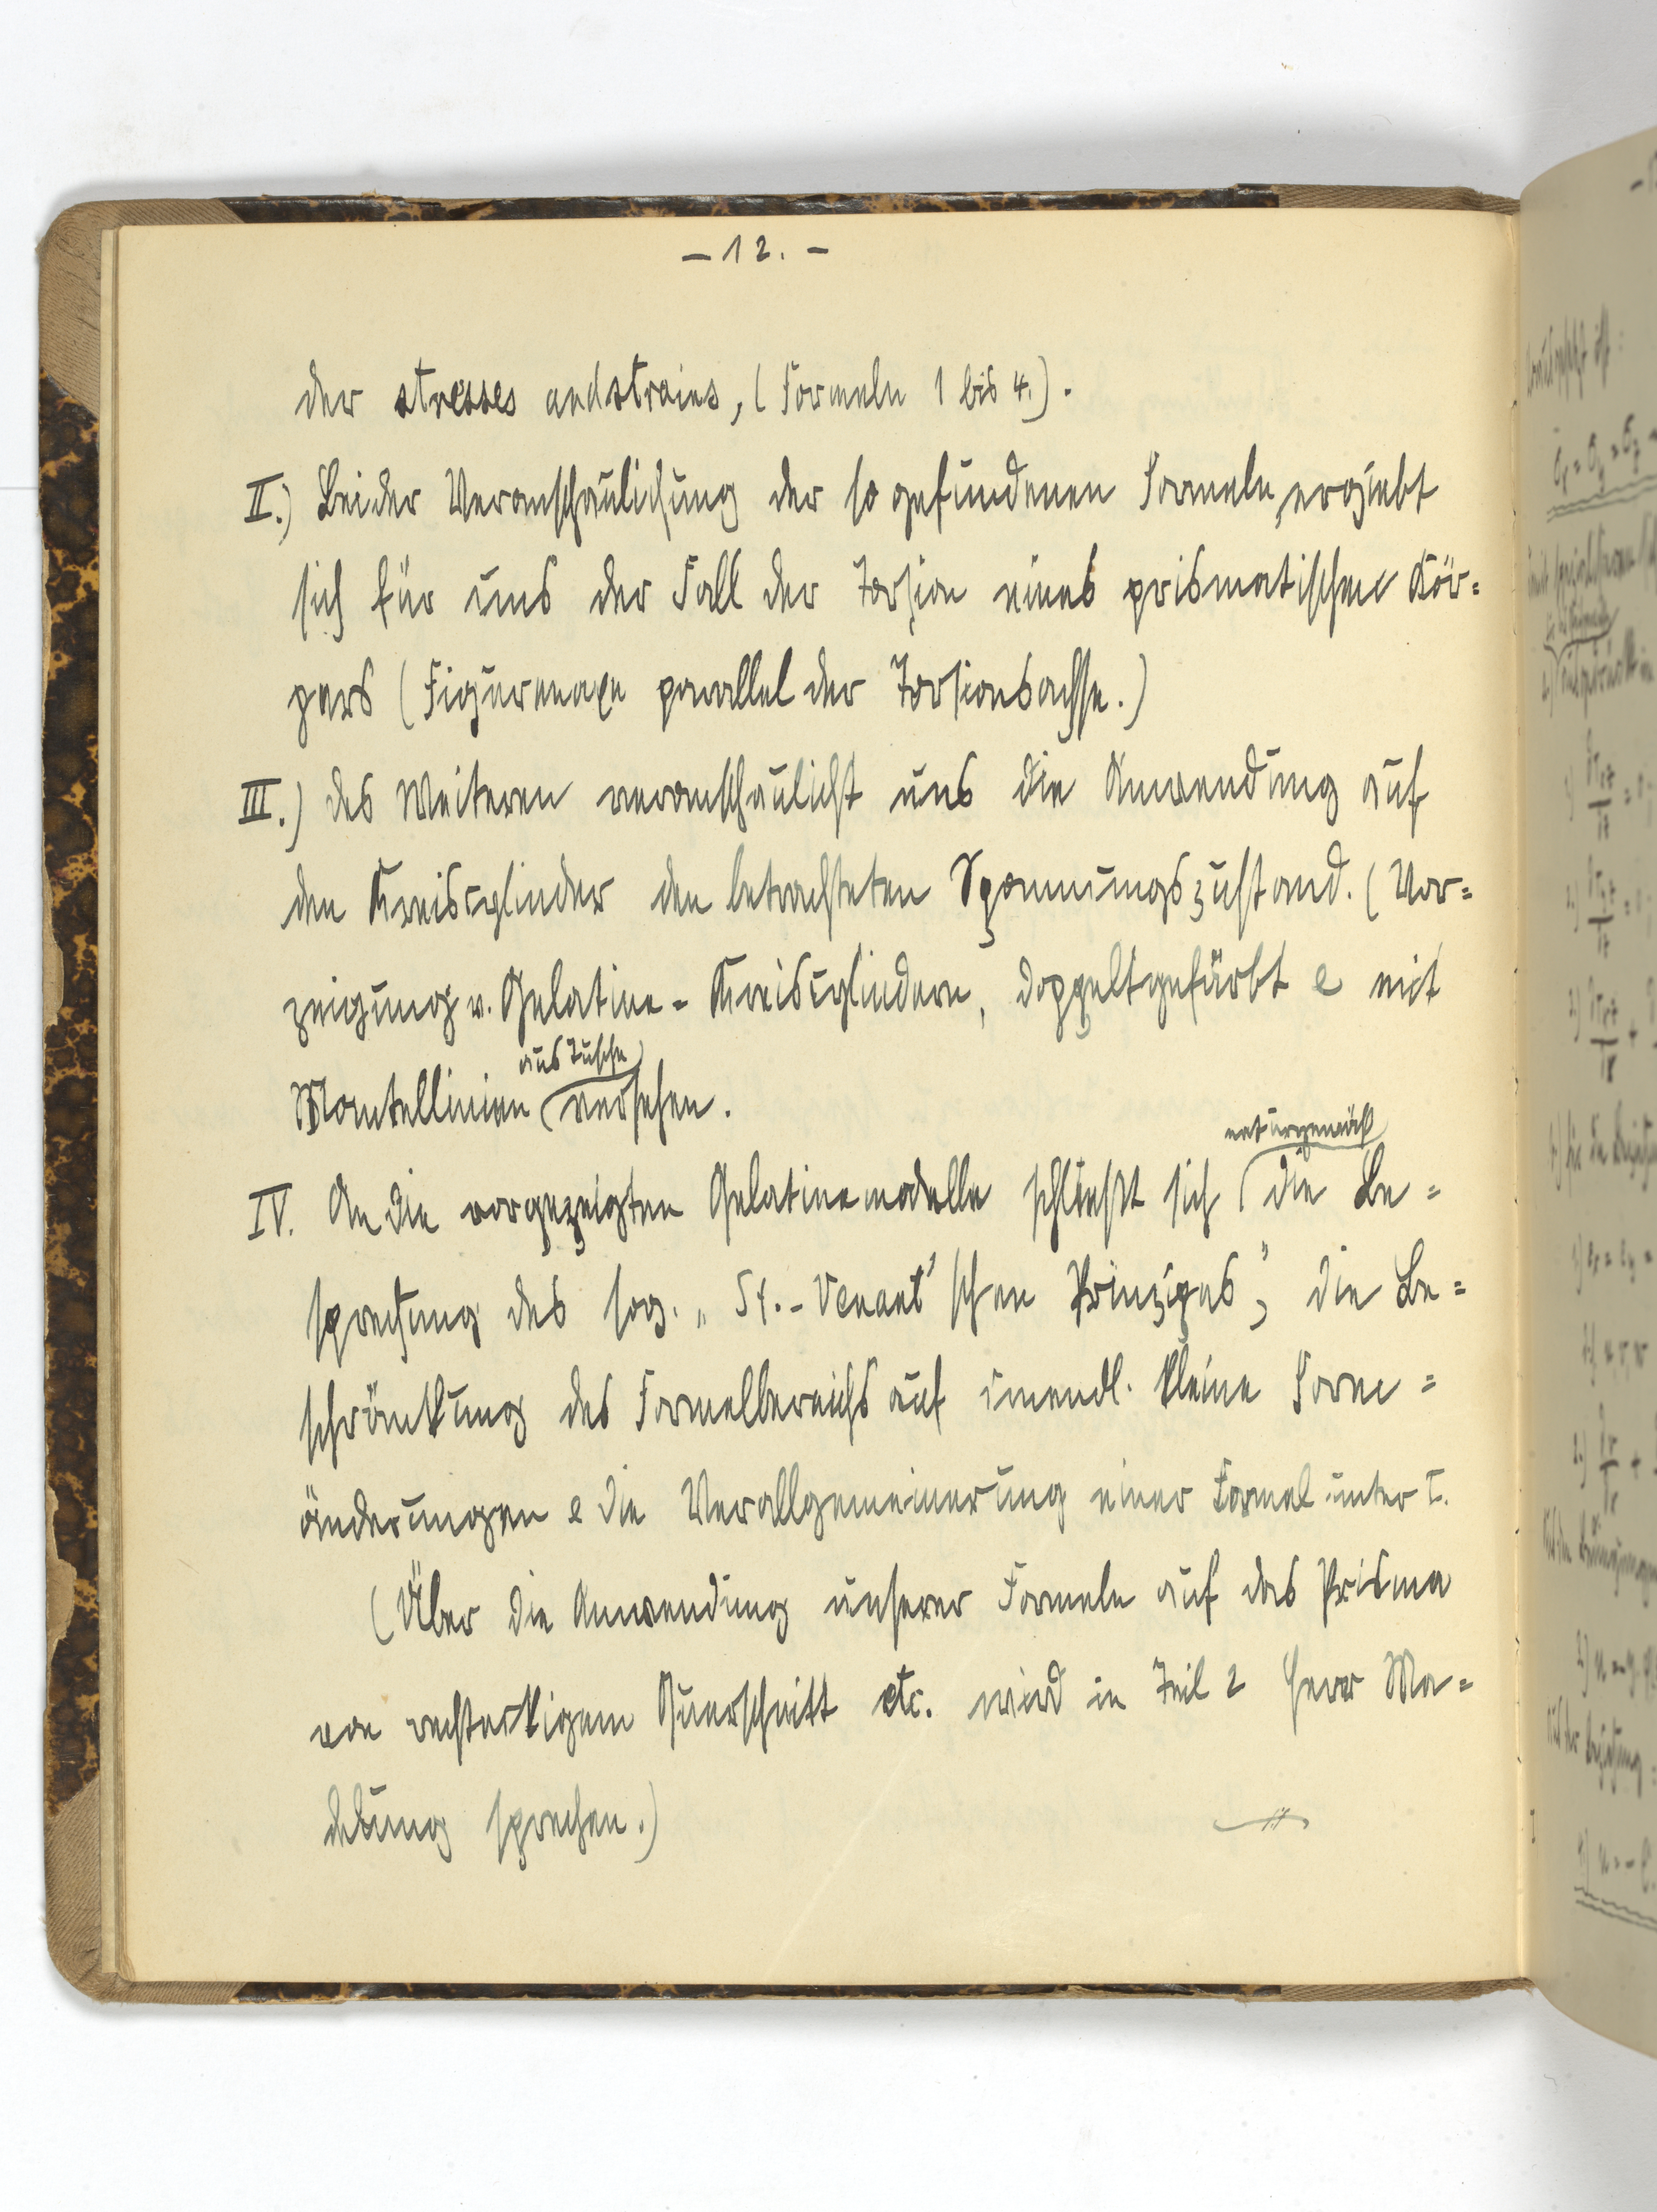 – 12. –
der stresses and strains, (Formeln 1 bis 4.).
II.) Bei der Veranschaulichung der so gefundenen Formeln, ergiebt
sich für uns der Fall der Torsion eines prismatischen Kör=
pers (Figurenaxe parallel der Torsionsachse.)
III.) des Weiteren veranschaulicht uns die Anwendung auf
den Kreiscylinder den betrachteten Spannungszustand. (Vor=
zeigung v. Gelatine-Kreiscylindern, doppelt gefärbt e mit
aus Tusche
Mantellinien versehen.
naturgemäß
IV. An die vorgezeigten Gelatinemodelle schließt sich die Be=
sprechung des sog. „St.-Venant'schen Prinzipes", die Be=
schränkung des Formelbereichs auf unendl. kleine Form=
änderungen e die Verallgemeinerung einer Formel unter I.
(Über die Anwendung unserer Formeln auf das Prisma
von rechteckigem Querschnitt etc. wird in Teil 2 Herr Ma=
sprechen.)